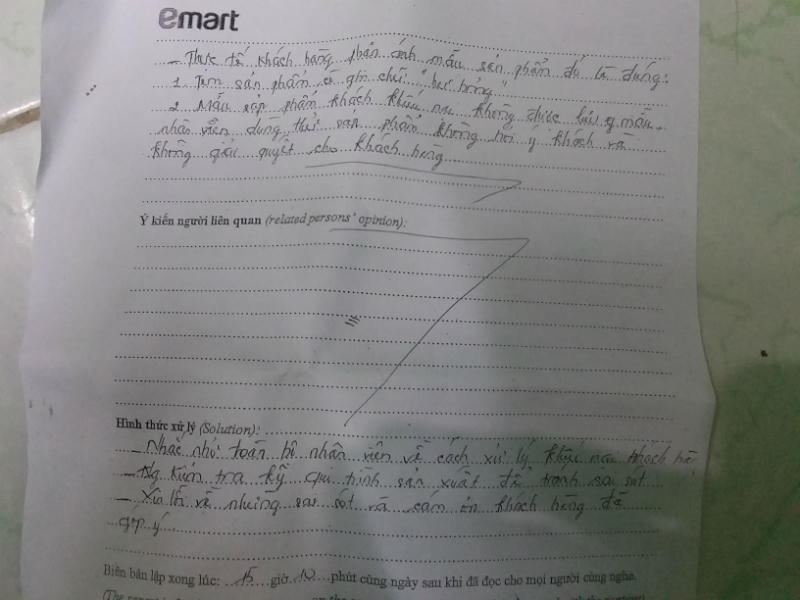 emart
- Thực tế khách hàng phản ánh mẫu sản phẩm đó là đúng:
1. Tem sản phẩm có ghi chữ: "hư hỏng"
2. Mẫu sản phẩm khách khiếu nại không được lưu mẫu.
nhân viên dùng thử sản phẩm không hỏi ý khách và
không giải quyết cho khách hàng
Ý kiến người liên quan (related persons' opinion):
Hình thức xử lý (Solution):
- Nhắc nhở toàn bộ nhân viên về cách xử lý khiếu nại khách hà
- kiểm tra kỹ qui trình sản xuất để tránh sai sót
- Xin lỗi về những sai sót và cám ơn khách hàng đã
góp ý.
Biên bản lập xong lúc: 15 giờ 10 phút cùng ngày sau khi đã đọc cho mọi người cùng nghe.